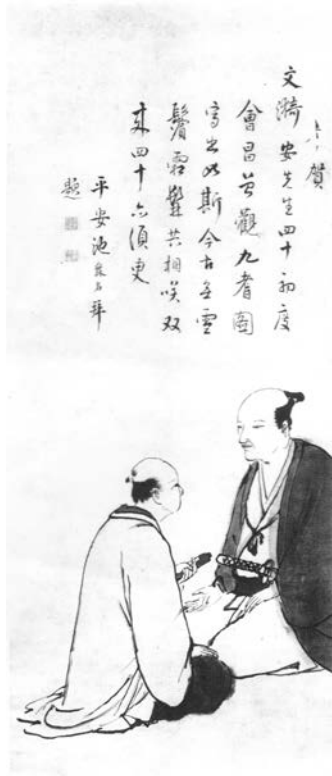 賀
文漪安先生四十初度
會昌曾觀九耆圖
寫出如斯今古無雪
鬢霜髭共相咲双
來四十六須更
平安池 拜
題